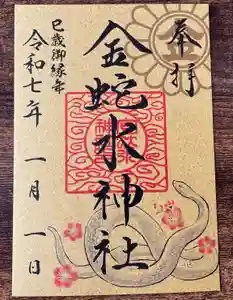 奉拝
金蛇水神社
巳歳御縁年
令和七年 一月一日